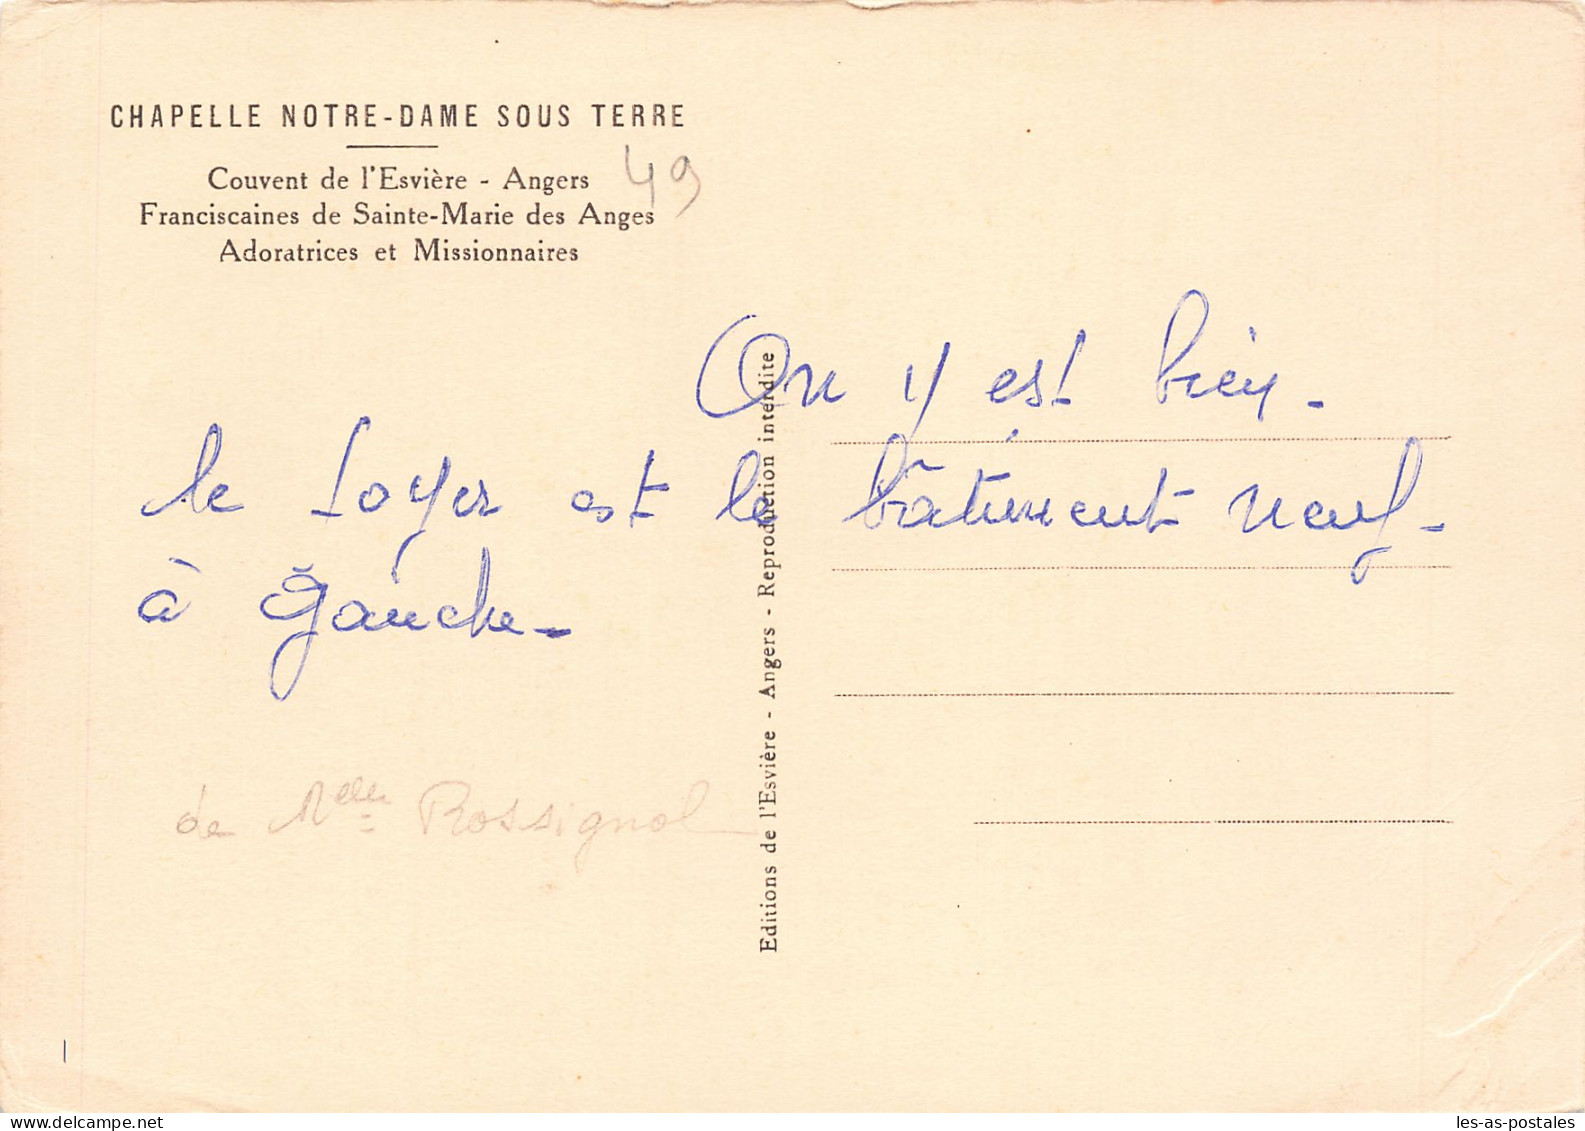 CHAPELLE NOTRE-DAME SOUS TERRE
Couvent de l'Esvière - Angers
49
Franciscaines de Sainte-Marie des Anges
Adoratrices et Missionnaires
On y est bien.
le foyer est le bâtiment neuf -
à gauche -
de Melle Rossignol
Editions de l'Esvière - Angers - Reproduction interdite
les-as-postales
www.delcampe.net